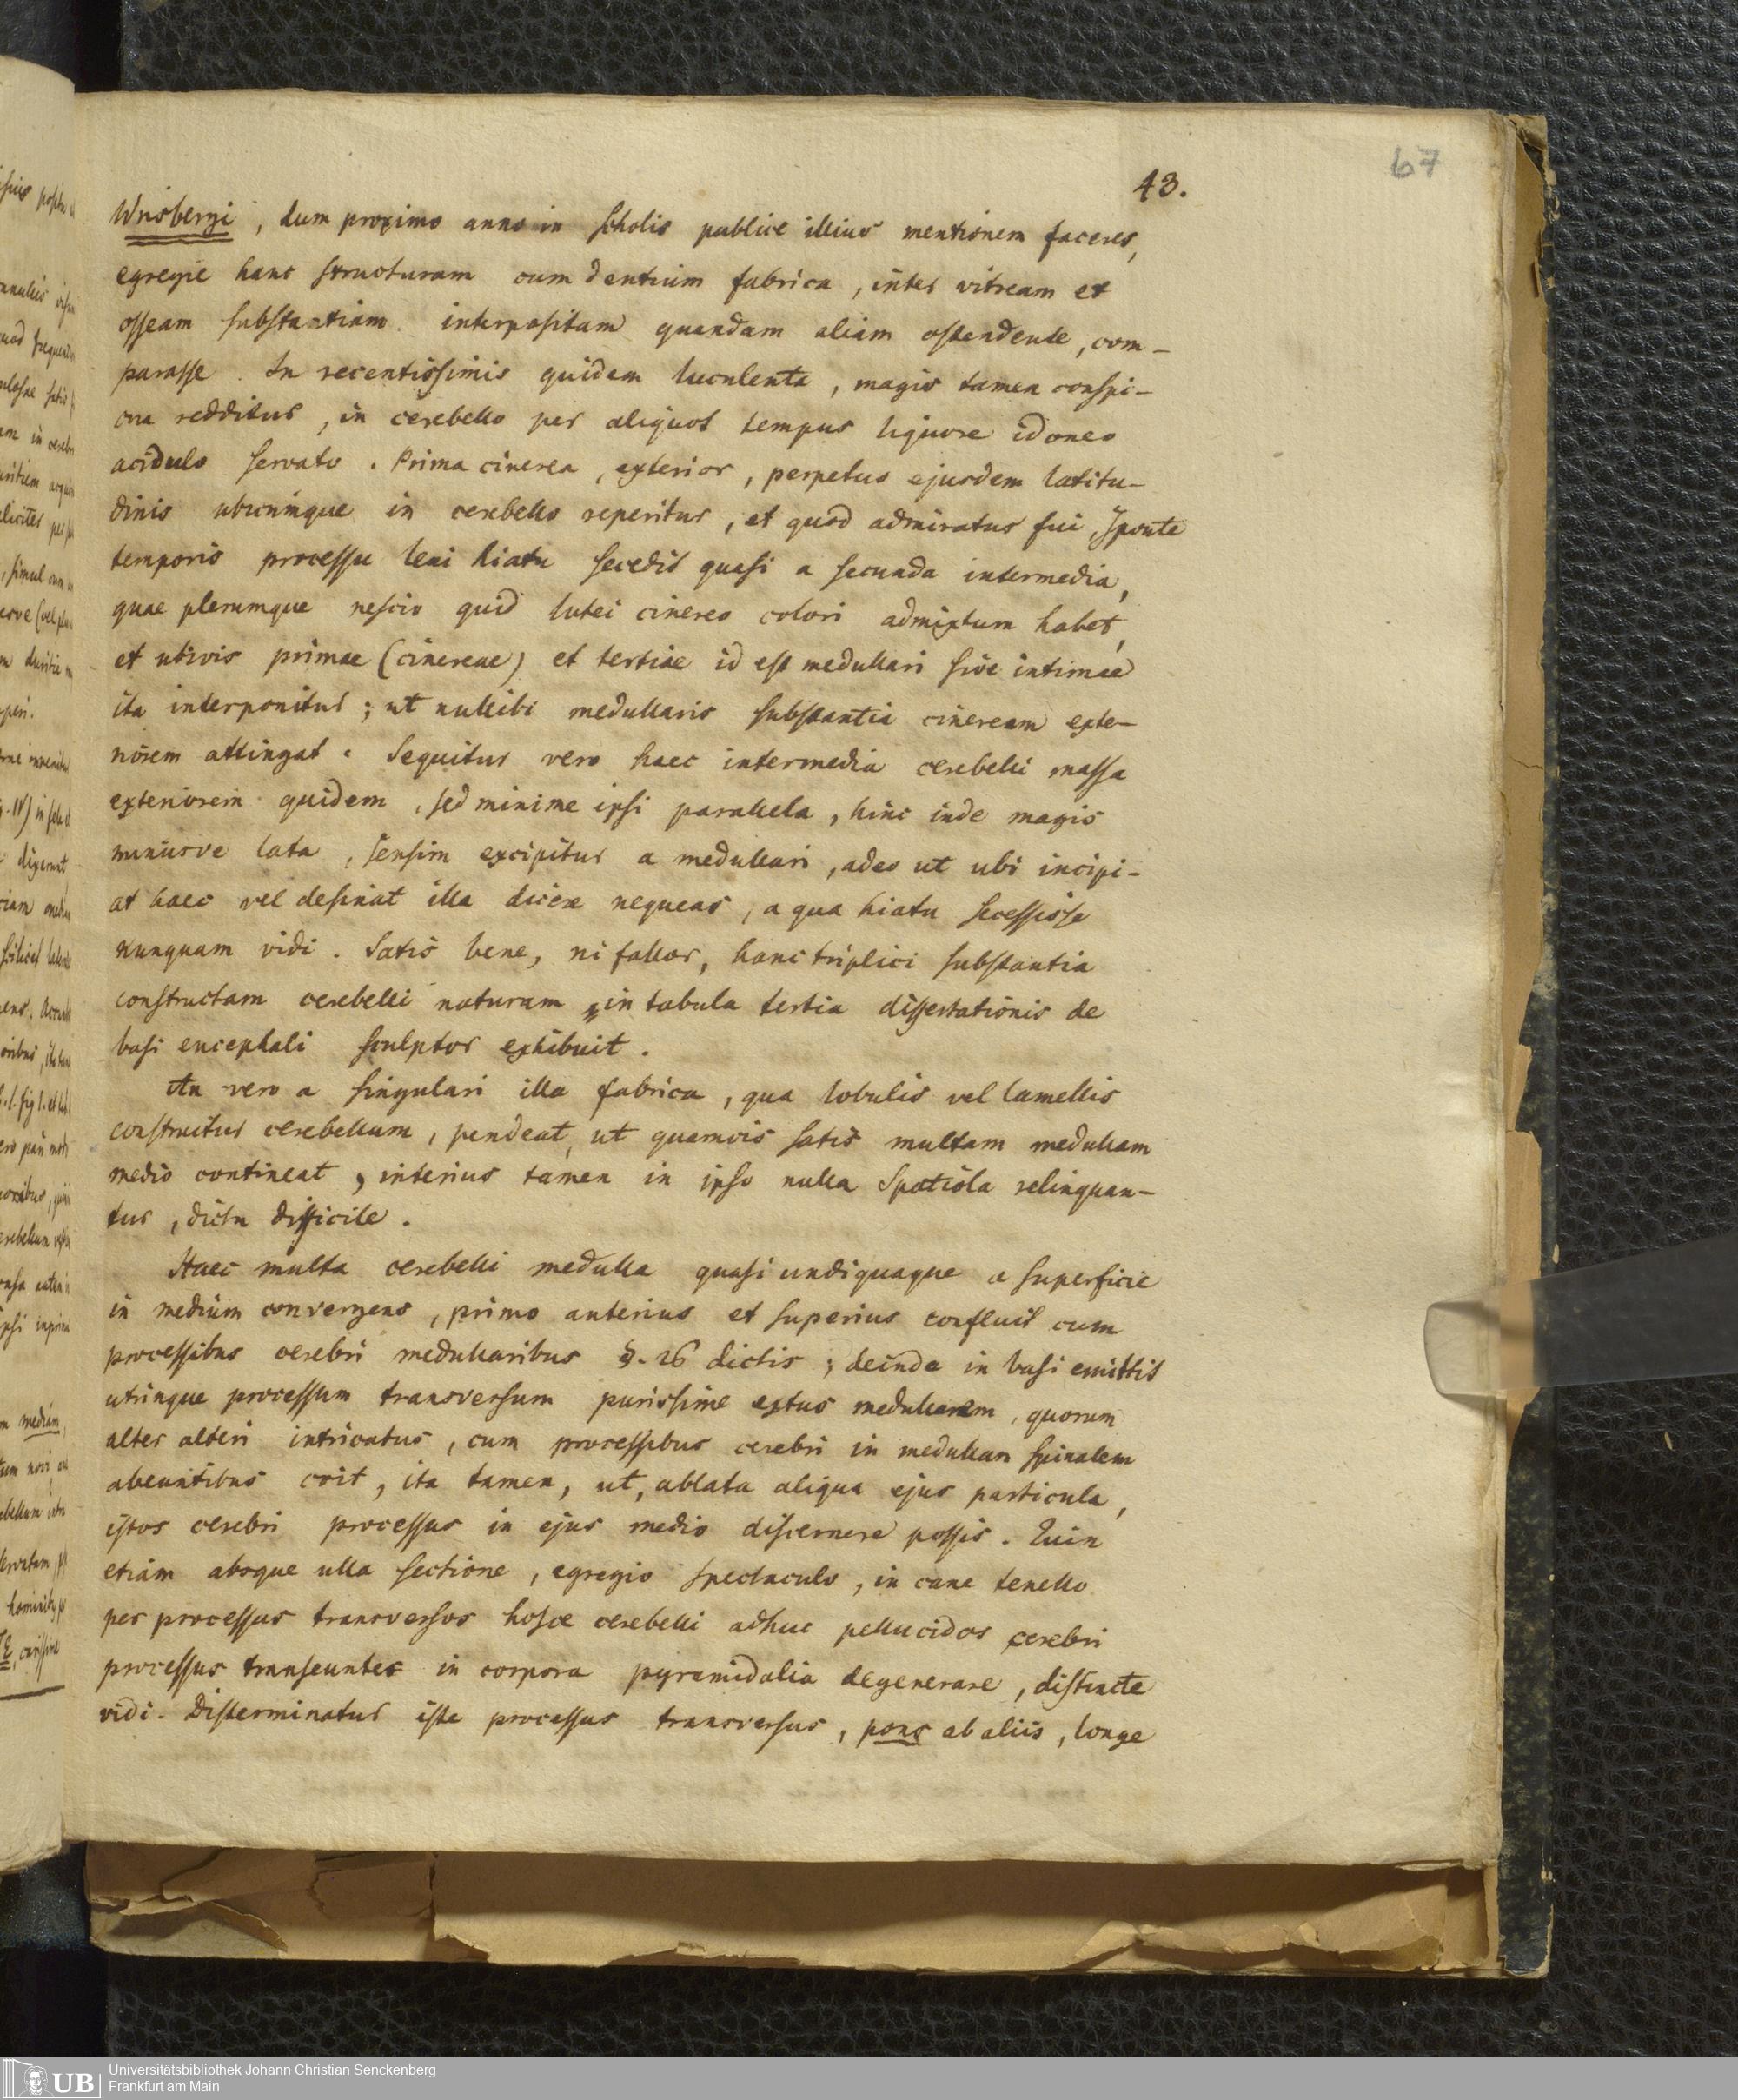 67
43.
Wrisbergi, dum proximo anno in scholis publice illius mentionem faceret,
egregie hanc structuram cum dentium fabrica, inter vitream et
osseam substantiam interpositam quandam aliam ostendente, com-
parasse. In recentissimis quidem luculenta, magis tamen conspi-
cua redditur, in cerebello per aliquot tempus liquore idoneo
acidulo servato. Prima cinerea, exterior, perpetuo ejusdem latitu-
dinis ubicunque in cerebello reperitur, et quod admiratus fui, sponte
temporis processu leni hiatu secedit quasi a secunda intermedia,
quae plerumque nescio quid lutei cinereo colori admixtum habet,
et ubivis primae (cinereae) et tertiae id est medullari sive intimae
ita interponitur; ut nullibi medullaris substantia cineream exte-
riorem attingat. Sequitur vero haec intermedia cerebelli massa
exteriorem quidem, sed minime ipsi parallela, hinc inde magis
minusve lata, sensim excipitur a medullari, adeo ut ubi incipi-
at haec vel desinat illa dicere nequeas, a qua hiatu secessisse
nunquam vidi. Satis bene, ni fallor, hanc triplici substantia
constructam cerebelli naturam in tabula tertia dissertationis de
basi encephali sculptor exhibuit.
An vero a singulari illa fabrica, qua lobulis vel lamellis
construitur cerebellum, pendeat, ut quamvis satis multam medullam
medio contineat, interius tamen in ipso nulla spatiola relinquan-
tur, dictu difficile.
Haec multa cerebelli medulla quasi undiquaque a superficie
in medium convergens, primo anterius et superius confluit cum
processibus cerebri medullaribus §. 26 dictis; deinde in basi emittit
utrinque processum transversum purissime extus medullarem, quorum
alter alteri intricatus, cum processibus cerebri in medullam spinalem
abeuntibus coit, ita tamen, ut, ablata aliqua ejus particula,
istos cerebri processus in ejus medio discernere possis. Quin
etiam absque ulla sectione, egregio spectaculo, in cane tenello
per processus transversos hosce cerebelli adhuc pellucidos cerebri
processus transeuntes in corpora pyramidalia degenerare, distincte
vidi. Disterminatur iste processus transversus, pons ab aliis, longe
UB Universitätsbibliothek Johann Christian Senckenberg
Frankfurt am Main